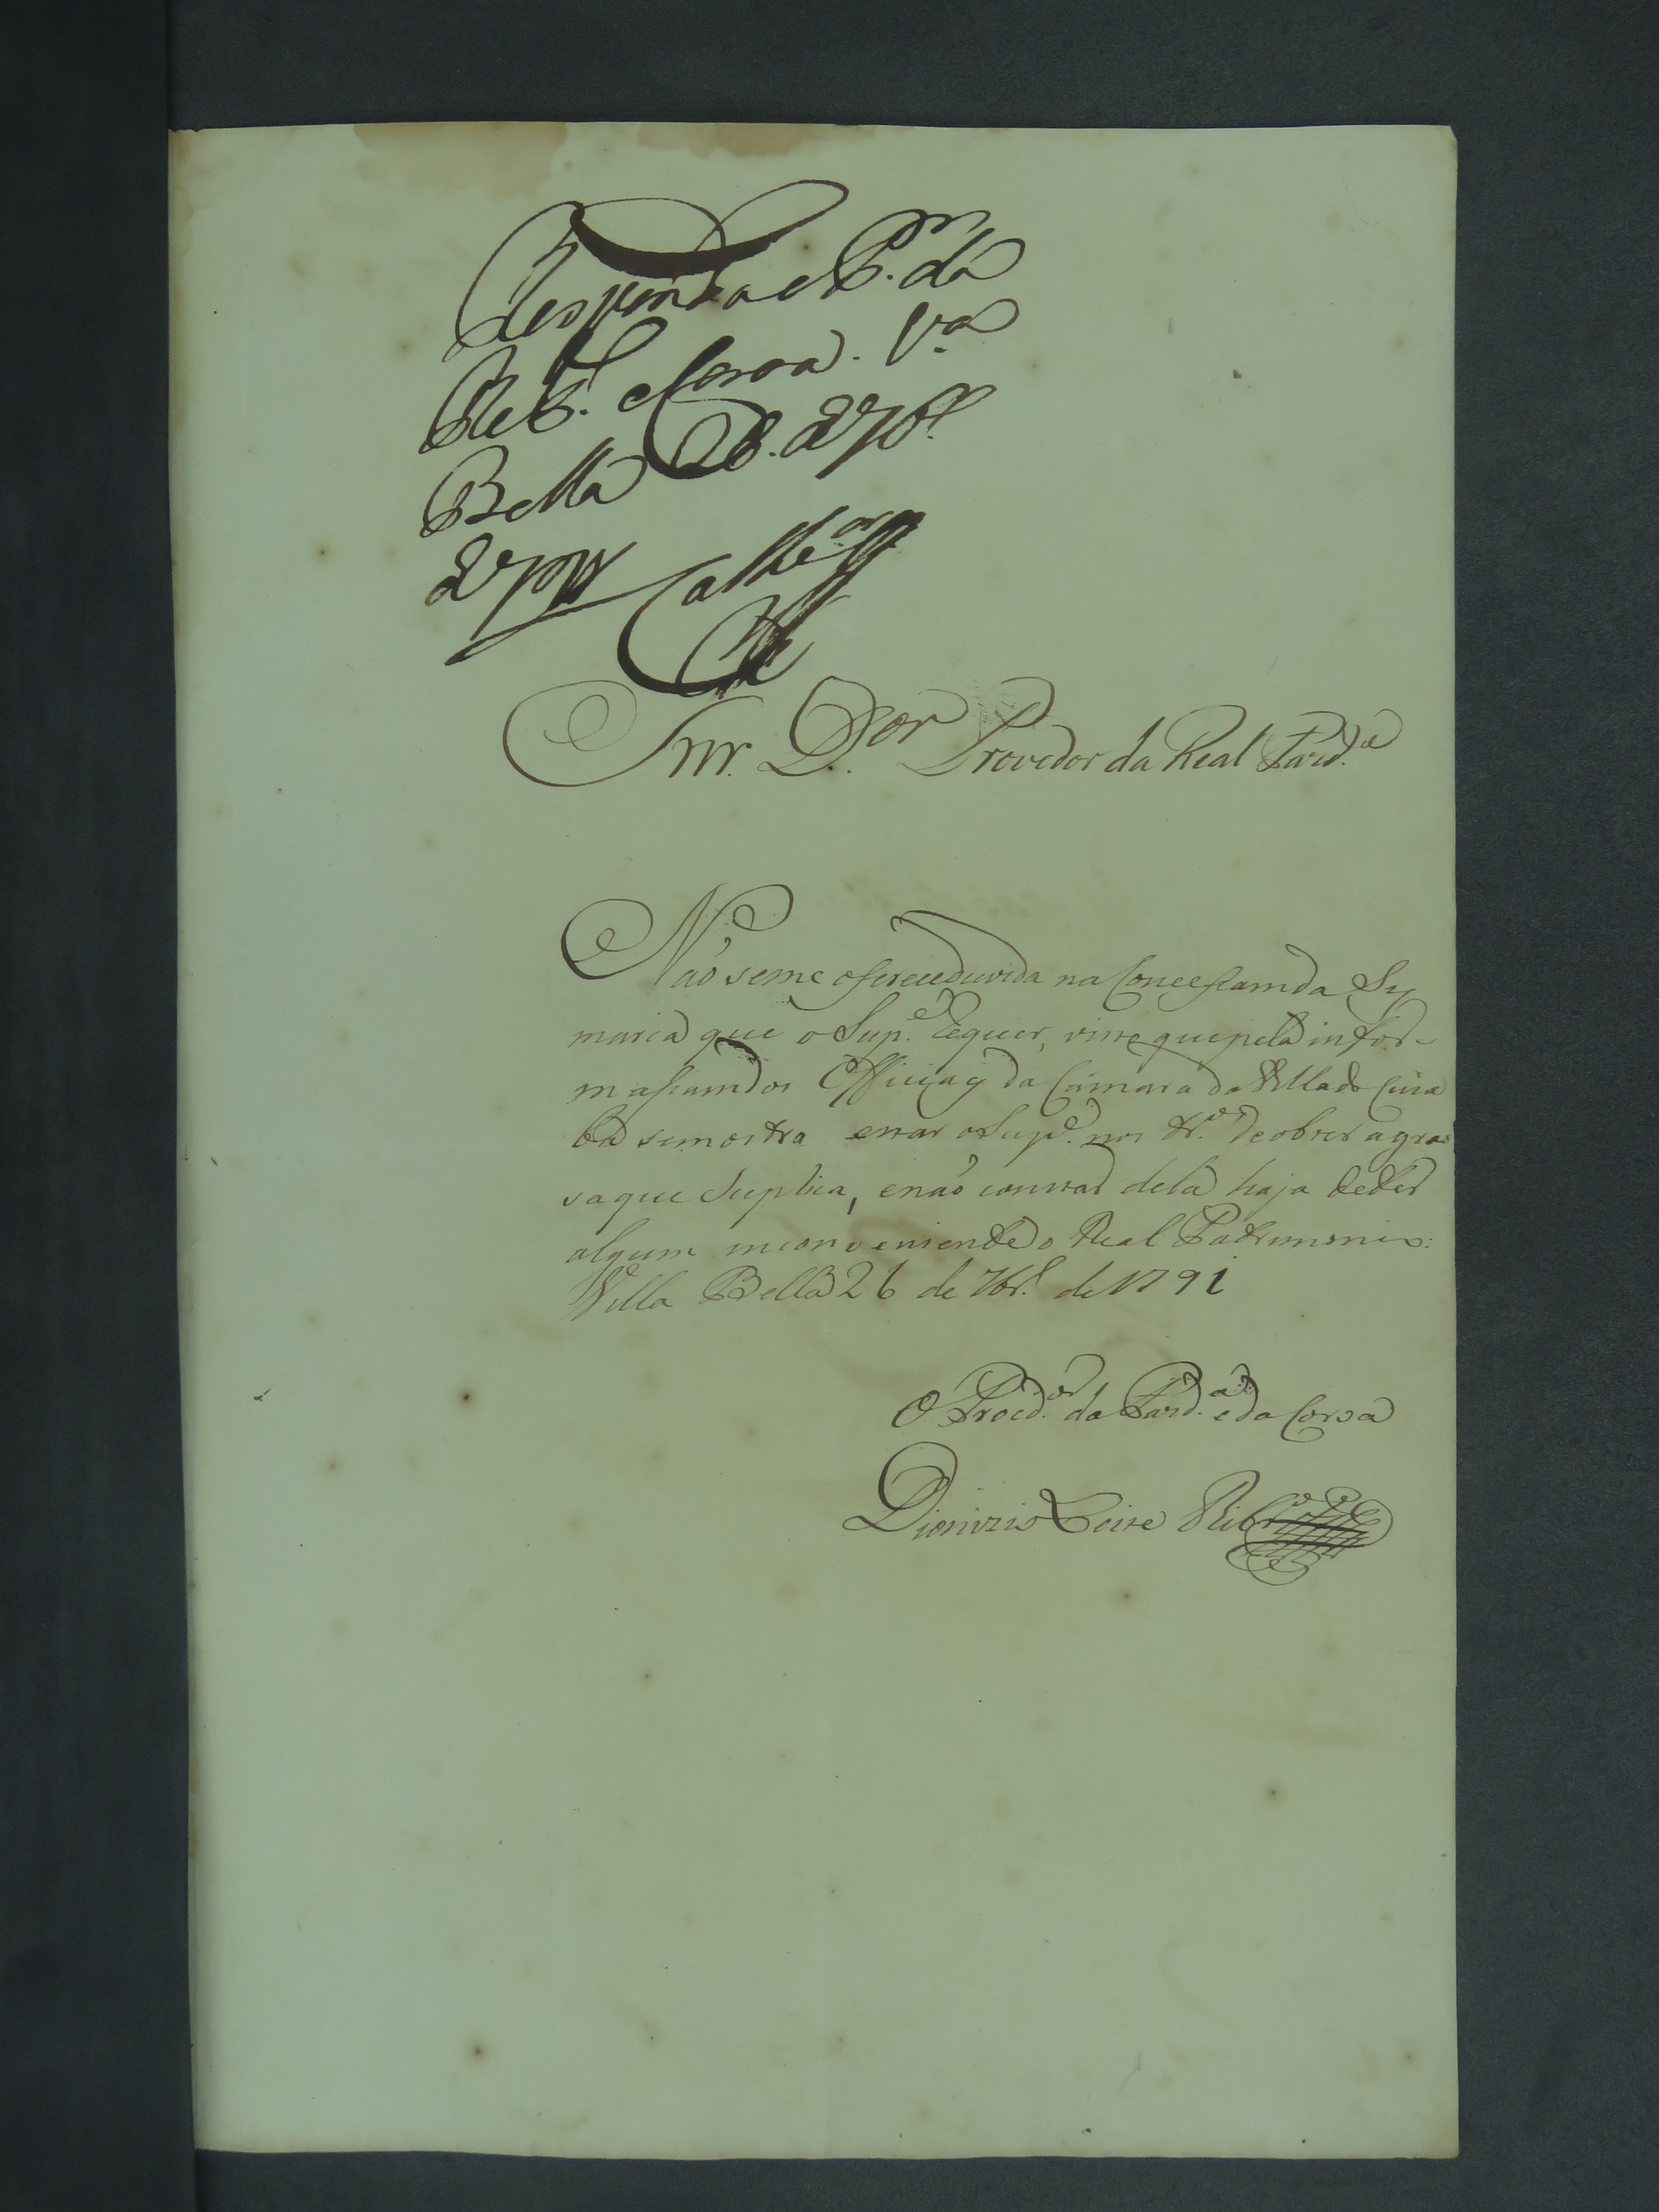 Responda o P.or da
R. F. e Coroa. V.a
Bella 28. de 7br.o
de 1791
Snr. D.or Provedor da Real Fazd.a
Não seme oferece duvida na Concessam da Sy
maria que o Sup.e Requer, visto que pela infor-
massam dos Officiays da Camara da Villa do Cuia
ba semostra estar o Sup.e nos tr.os de obter a gra
sa que Suplica, e não constar dela haja de ter
algum inconveniente o Real Patrimonio:
Villa Bella 26 de 7br.o de 1791
O Procd.or da Fazd.a e da Coroa
Dionizio Leite Ribr.o